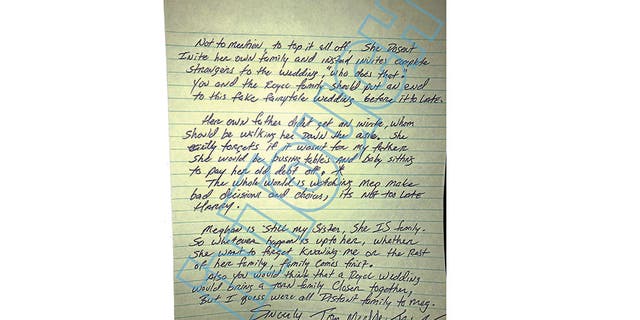 Not to mention, to top it all off, She Dosent
Inite her own family and instead invites complete
strangers to the wedding. "who does that".
You and the Royal family should put an end
to this fake fairytale wedding before it to Late.
Her own father didnt get an invite, whom
should be walking her Down the aisle. She
forgets if it wasnt for my father
she would be busing tables and baby sitting
to pay her old debt off.
The whole world is watching Meg make
bad decisions and choices, its Not too Late
Harry.
Meghan is still my Sister, She IS family.
So whatever happen is up to her, whether
She want to forget knowing me or the Rest
of her family, family comes first.
Also you would think that a Royal wedding
would bring a torn family closer together,
But I guess were all Distant family to Meg.
Sincerly Tom Markle